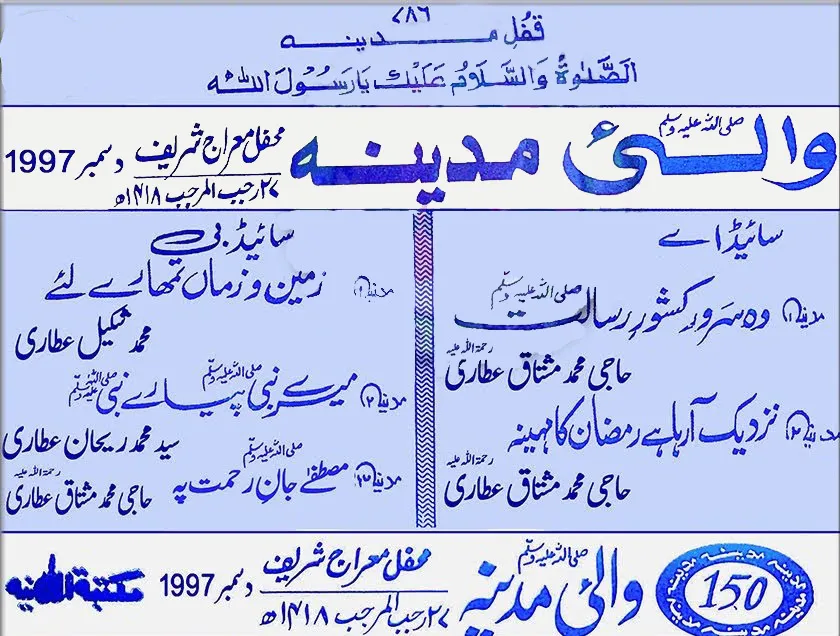 ۷۸۶
قفلِ مدینہ
اَلصَّلٰوۃُ وَالسَّلَامُ عَلَیْكَ یَارَسُوْلَ اللہ
والئ مدینہ صلی اللہ علیہ وسلم
محفل معراج شریف
۲۷ رجب المرجب ۱۴۱۸ھ
دسمبر 1997
سائیڈ اے
مدینہ ۱ وہ سَرورِ کشورِ رسالت صلی اللہ علیہ وسلم
حاجی محمد مشتاق عطاری رحمۃ اللہ علیہ
مدینہ ۲ نزدیک آرہا ہے رمضان کا مہینہ
حاجی محمد مشتاق عطاری رحمۃ اللہ علیہ
سائیڈ بی
مدینہ ۱ زمین و زماں تمھارے لئے
محمد شکیل عطاری
مدینہ ۲ میرے نبی صلی اللہ علیہ وسلم پیارے نبی صلی اللہ علیہ وسلم
سید محمد ریحان عطاری
مدینہ ۳ مصطفےٰ جانِ رحمت پہ صلی اللہ علیہ وسلم
حاجی محمد مشتاق عطاری رحمۃ اللہ علیہ
150
والئ مدینہ صلی اللہ علیہ وسلم
محفل معراج شریف
۲۷ رجب المرجب ۱۴۱۸ھ
دسمبر 1997
مکتبۃ المدینہ